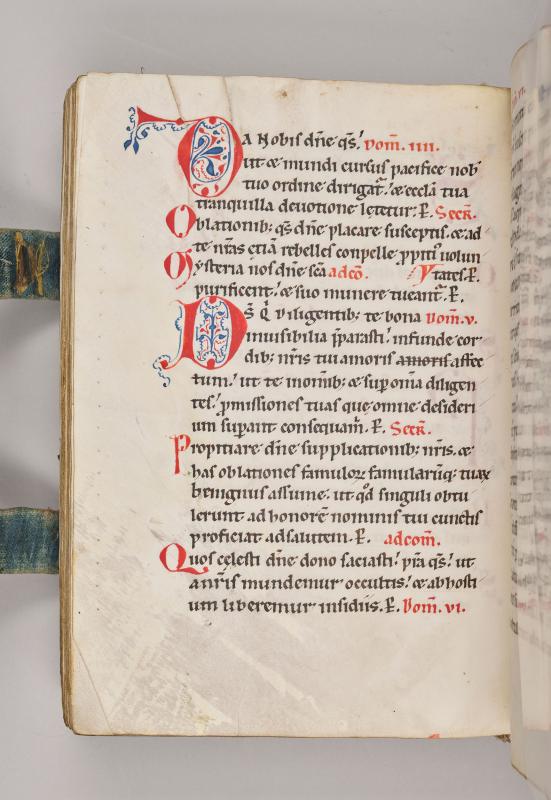 DA Nobis dn̄e q̄s; Dom̄. IIII.
ut & mundi cursus pacifice nob
tuo ordine dirigat̄. & eccl̄a tua
tranquilla deuotione letetur. P̄. Secr̄.
Oblationib; q̄s dn̄e placare susceptis. & ad
te nr̄as etiā rebelles conpelle ꝓpiti uolun
Mysteria nos dn̄e sc̄a adcō. tates. P̄.
purificent. & suo munere tueant̄. P̄.
DS̄ Q̇ Diligentib; te bona Dom̄. V.
inuisibilia p̄parasti. infunde cor
dib; nr̄is tui amoris amoris affec
tum. ut te in om̄ib; & sup om̄a diligen
tes. ꝓmissiones tuas que omne desideri
um sup̄ant consequam̄. P̄. Secr̄.
Propitiare dn̄e supplicationib; nr̄is. &
has oblationes famuloꝝ famularūq; tuaꝝ
benignus assume. ut qd̄ singuli obtu
lerunt ad honorē nominis tui cunctis
proficiat ad salutem. P̄. adcom̄.
Quos celesti dn̄e dono saciasti. p̄ta q̄s; ut
a nr̄is mundemur occultis. & ab hosti
um liberemur insidiis. P̄. Dom̄. VI.